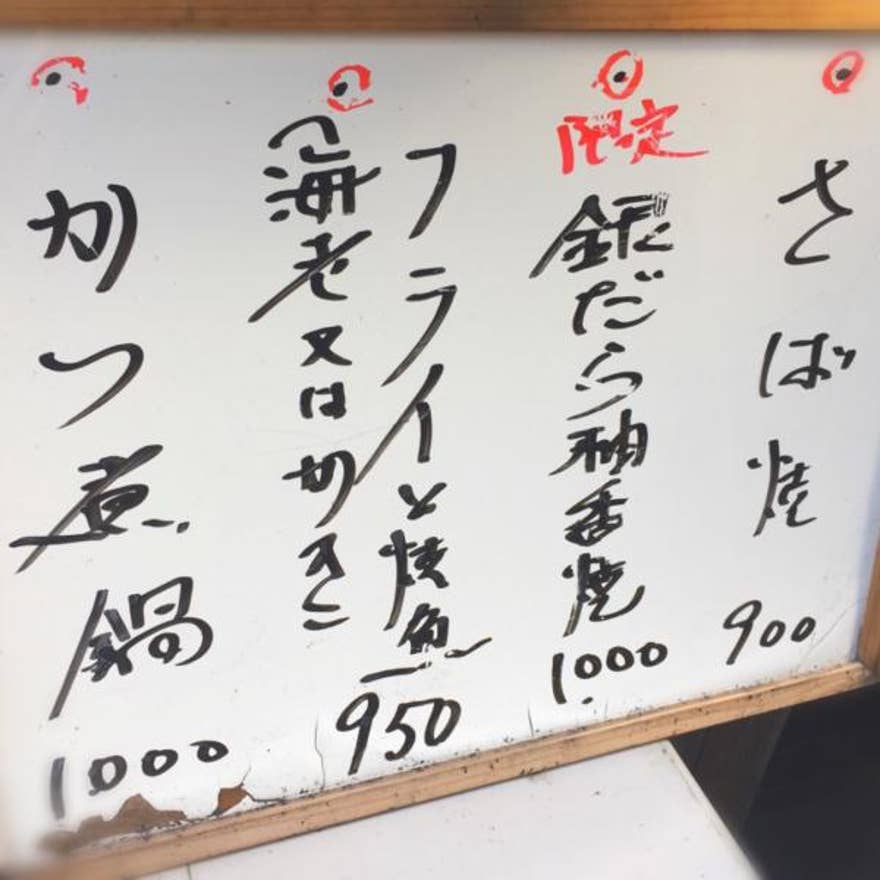 さば焼 900
限定
銀だら柚香焼 1000
フライと焼魚
(海老又はかき 950
かつ煮鍋 1000